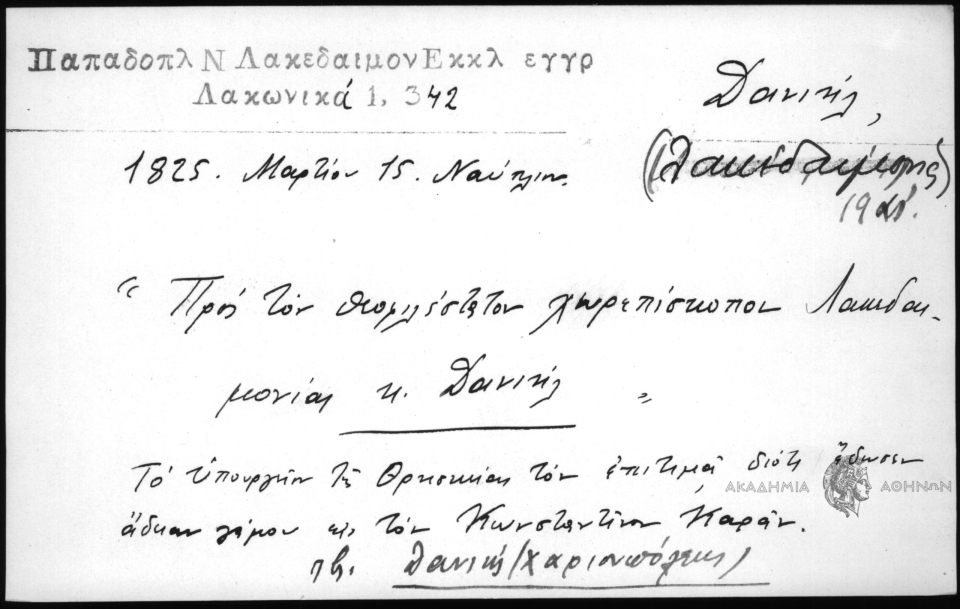 Παπαδοπλ Ν Λακεδαιμον Εκκλ εγγρ
Λακωνικά 1, 342
Δανιήλ,
(Λακεδαιμονίας)
1825. Μαρτίου 15. Ναύπλιον.
"Πρός τόν θεοφιλέστατον χωρεπίσκοπον Λακεδαι-
μονίας κ. Δανιήλ"
Τό Ὑπουργεῖον τῆς Θρησκείας τόν ἐπιτιμᾷ διότι ἔδωσεν
ἄδειαν γάμου εἰς τόν Κωνσταντῖνον Καρᾶν.
πβ. Δανιήλ (Χαριουπόλεως)
ΑΚΑΔΗΜΙΑ ΑΘΗΝΩΝ